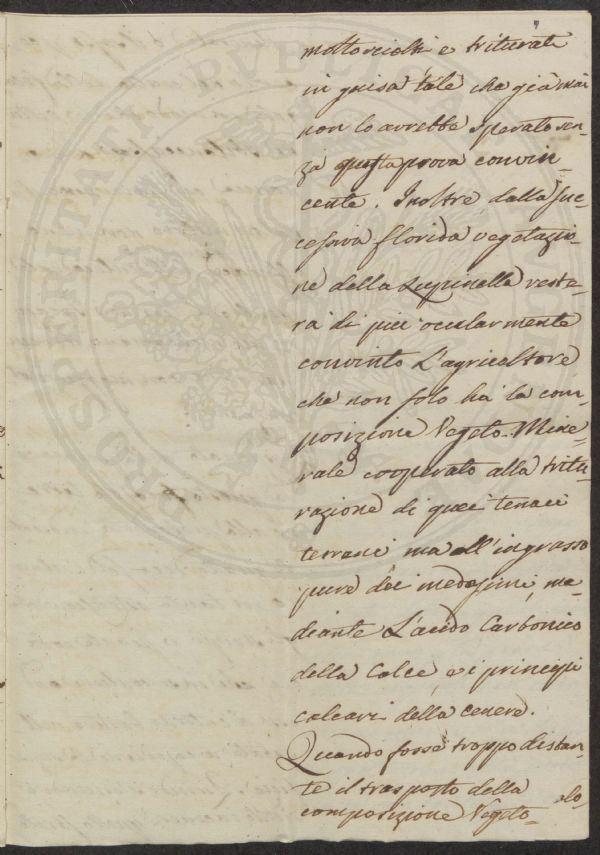 molto sciolti e triturati
in guisa tale che già mai
non lo avrebbe sperato sen-
za questa prova convin-
cente. Inoltre dalla suc-
cessiva florida vegetazio-
ne della Lupinella reste-
rà di più ocularmente
convinto L'agricoltore
che non solo ha la com-
posizione Vegeto-Mine-
rale cooperato alla tritu-
razione di quei tenaci
terreni ma all'ingrasso
pure dei medesimi, me-
diante L'acido Carbonico
della Calce e i principj
calcari della cenere.
Quando fosse troppo distan-
te il trasposto della
composizione Vegeto-
PUBLICA
PROSPERITATI